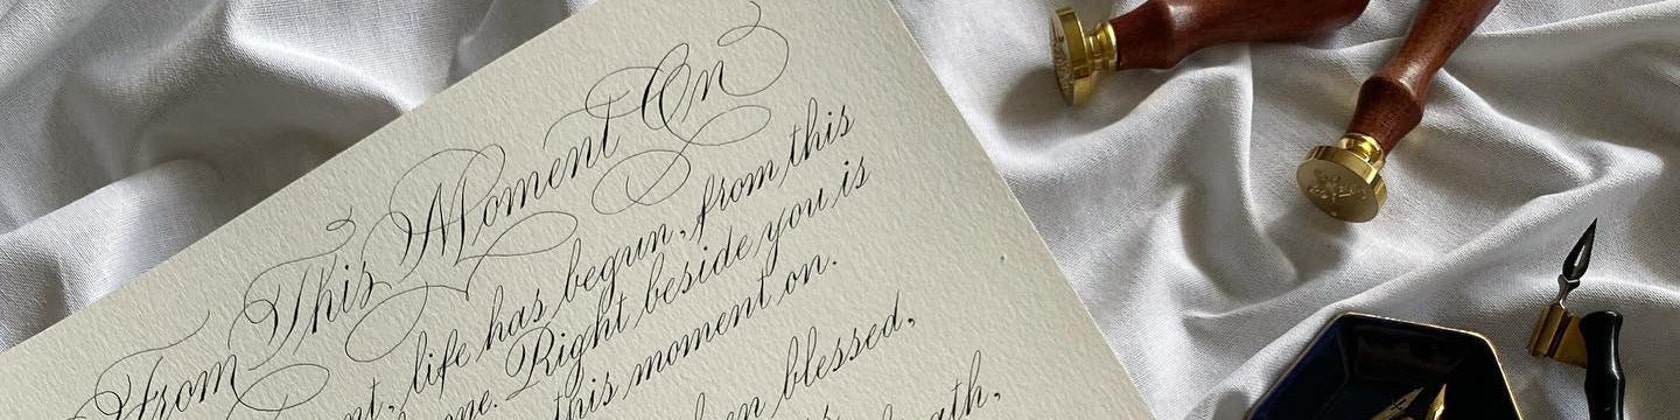 From This Moment On
life has begun, from this
Right beside you is
this moment on.
blessed,